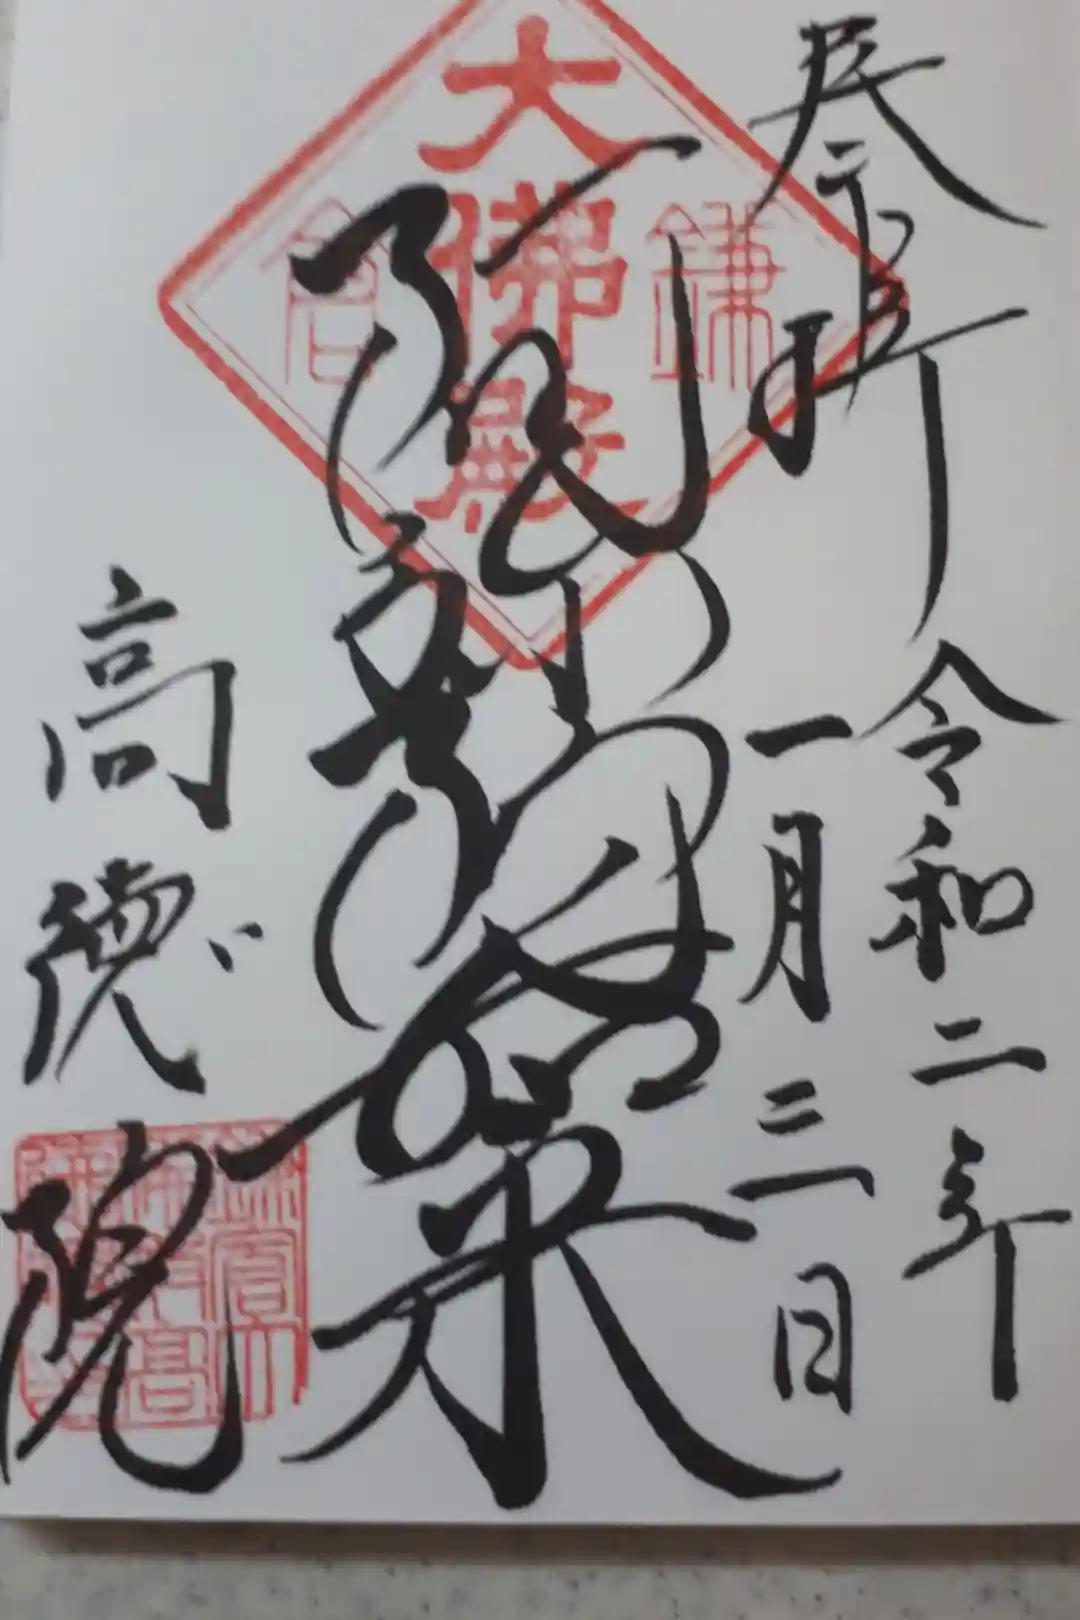 奉拝
令和二年
一月三日
阿弥陀如来
高徳院
大佛殿
鎌倉